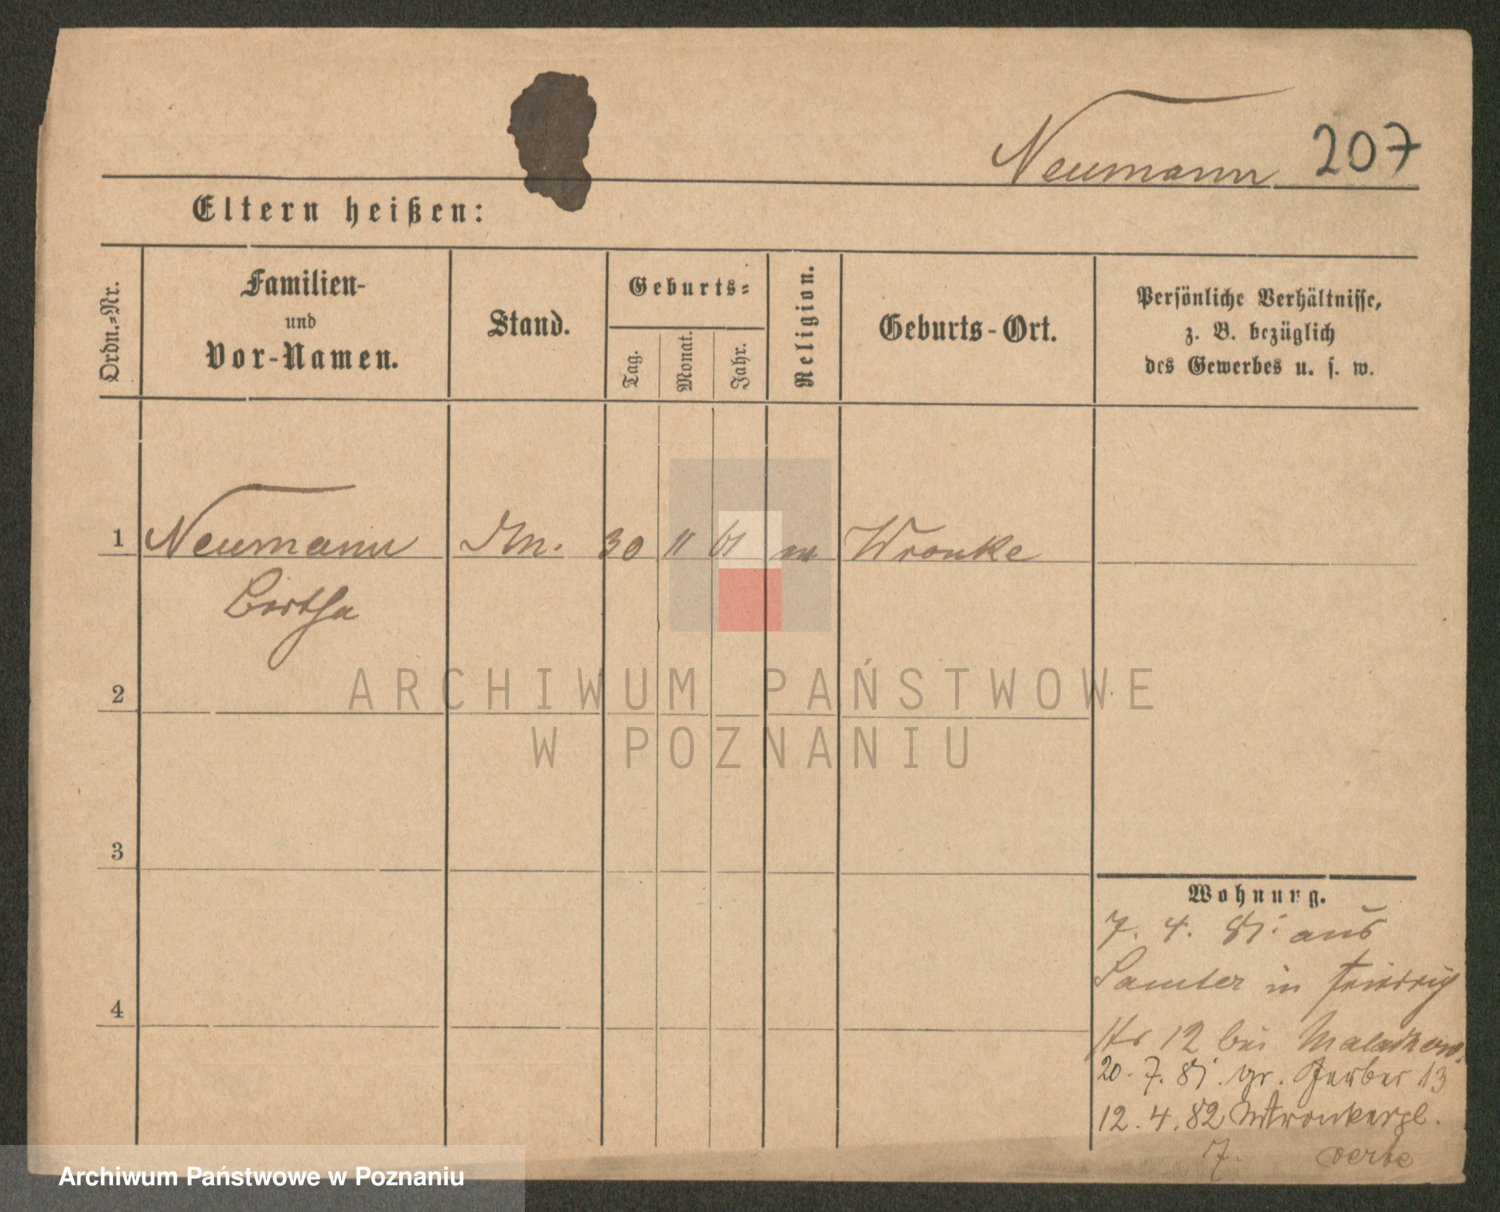 Neumann 207
Eltern heißen:
Ordn.-Nr.
Familien-
und
Vor-Namen.
Stand.
Geburts-
Tag.
Monat.
Jahr.
Religion.
Geburts-Ort.
Persönliche Verhältnisse,
z. B. bezüglich
des Gewerbes u. s. w.
1 Neumann 30 11 61 m Wronke
Bertha
2
3
4
ARCHIWUM PAŃSTWOWE
W POZNANIU
Wohnung.
7. 4. 81. aus
Samter in Friedrich
str 12 bei
20. 7. 81. gr. Gerber 13
12. 4. 82 Wronkerpl.
7.
Archiwum Państwowe w Poznaniu